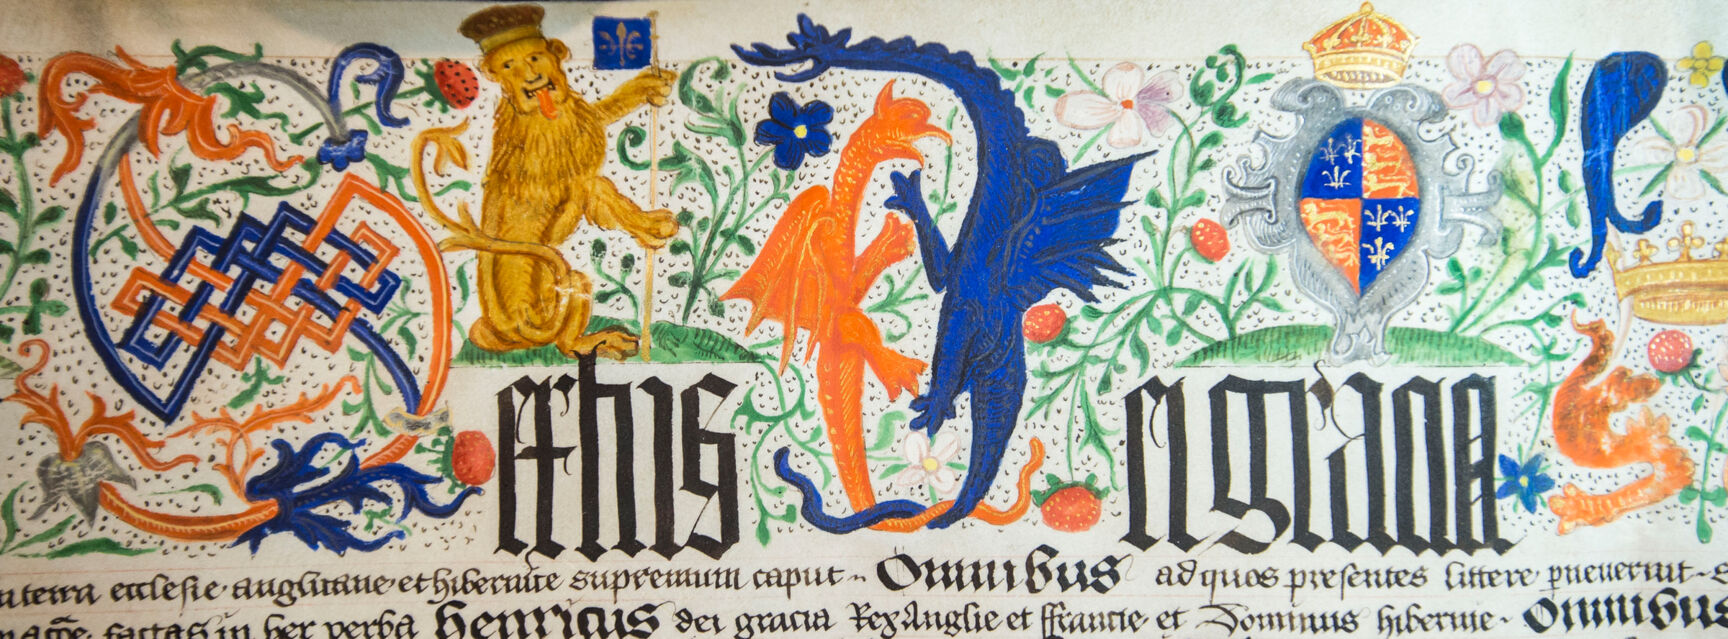 Sextus Dei gracia
in terra ecclesie · anglicane · et hibernice supremum caput · Omnibus ad quos presentes littere puenerint ·
factas in hec verba Henricus dei gracia Rex Anglie et ffrancie et Dominus hibernie · Omnibus